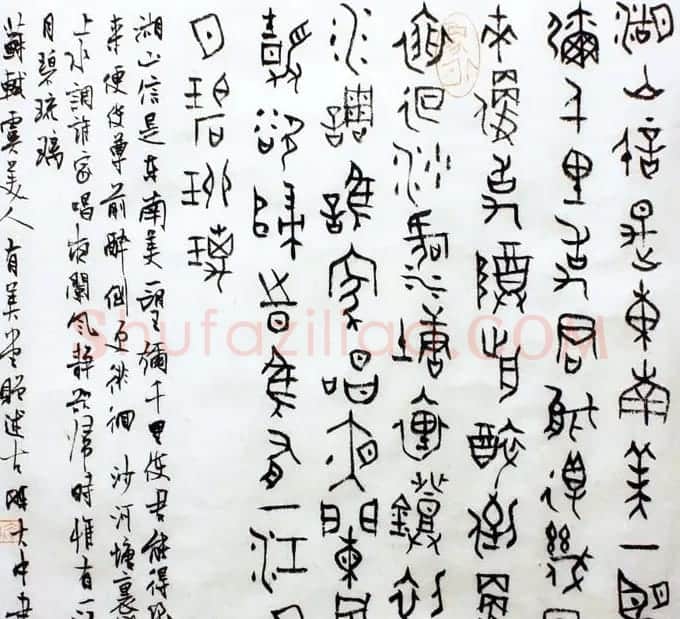 湖山信是東南美一望
彌千里使君能得幾
來便使尊前醉倒更
徘徊沙河塘裏鐙初
水調誰家唱夜闌風
靜欲歸時隹有一江
月碧琉璃
湖山信是東南美一望彌千里使君能得幾
來便使尊前醉倒更徘徊沙河塘裏燈
上水調誰家唱夜闌風靜欲歸時惟有一
月碧琉璃
蘇軾虞美人有美堂贈述古 大中書
Shufaziliao.COM